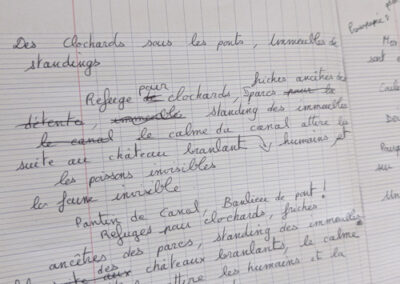 Des clochards sous les ponts, Immeubles de
standings
pour friches ancêtres des
Refuge de clochards, parcs pour la
détente, immeuble standing des immeubles
le canal le calme du canal attire les
suite au château branlant humains et
les poissons invisibles
la faune invisible
Pantin de Canal, Banlieue de pont !
Refuges pour clochards, friches
ancêtres des parcs, standing des immeubles
des châteaux branlants, le calme
attire les humains et la